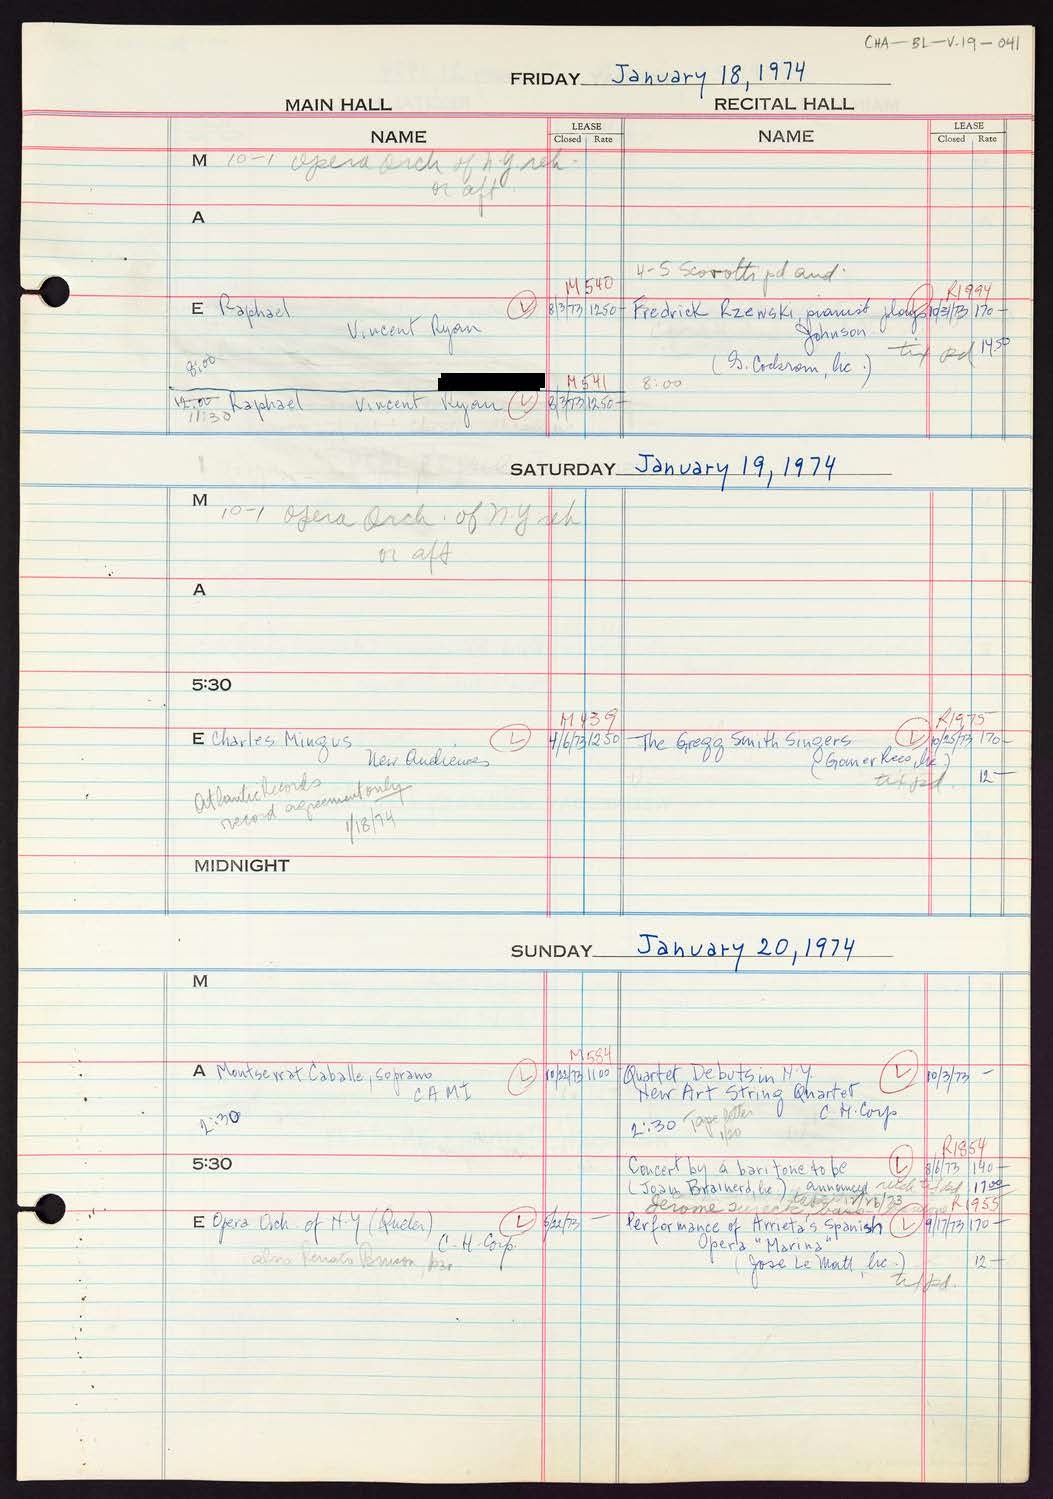 CHA-BL-V.19-041
FRIDAY January 18, 1974
MAIN HALL RECITAL HALL
NAME LEASE Closed Rate NAME LEASE Closed Rate
M 10-1 Opera Orch of N.Y reh.
or aft
A
4-5 pd and.
M540 R1994
E Raphael L 8/3/73 1250- Fredrick Rzewski, pianist plays L 10/3/73 170-
Vincent Ryan Johnson
tix pd 1450
8:00 (G. Cockrom, Inc.)
M541 8:00
12:00 Raphael Vincent Ryan L 8/3/73 1250-
11:30
SATURDAY January 19, 1974
M 10-1 Opera Orch. of N Y reh
or aft
A
5:30
M439 R1975
E Charles Mingus L 4/6/73 1250 The Gregg Smith Singers L 10/25/73 170-
New Audiences (Gomer Rees, Inc)
tix pd. 12-
Atlantic Records
record agreement only
1/18/74
MIDNIGHT
SUNDAY January 20, 1974
M
M584
A Montserrat Caballe, soprano L 10/22/73 1100 Quartet Debuts in N.Y. L 10/3/73 -
CAMI New Art String Quartet
C H. Corp
2:30 2:30 Tape letter
1/20
R1854
5:30 Concert by a baritone to be L 8/6/73 140-
(Joan Brainerd, Inc.) announced 1700
Jerome R1955
E Opera Orch. of N.Y (Queler) L 5/22/73 - Performance of Arrieta's Spanish L 9/17/73 170-
C-H-Corp. Opera "Marina"
also Renato Bruson, bar (Jose Le Matt, Inc.) 12-
tix pd.